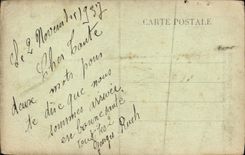 CARTE POSTALE
Le 2 Novembre 1937
Cher Tante
deux mots pour
te dire que nous
sommes arrivés
en bonne santé